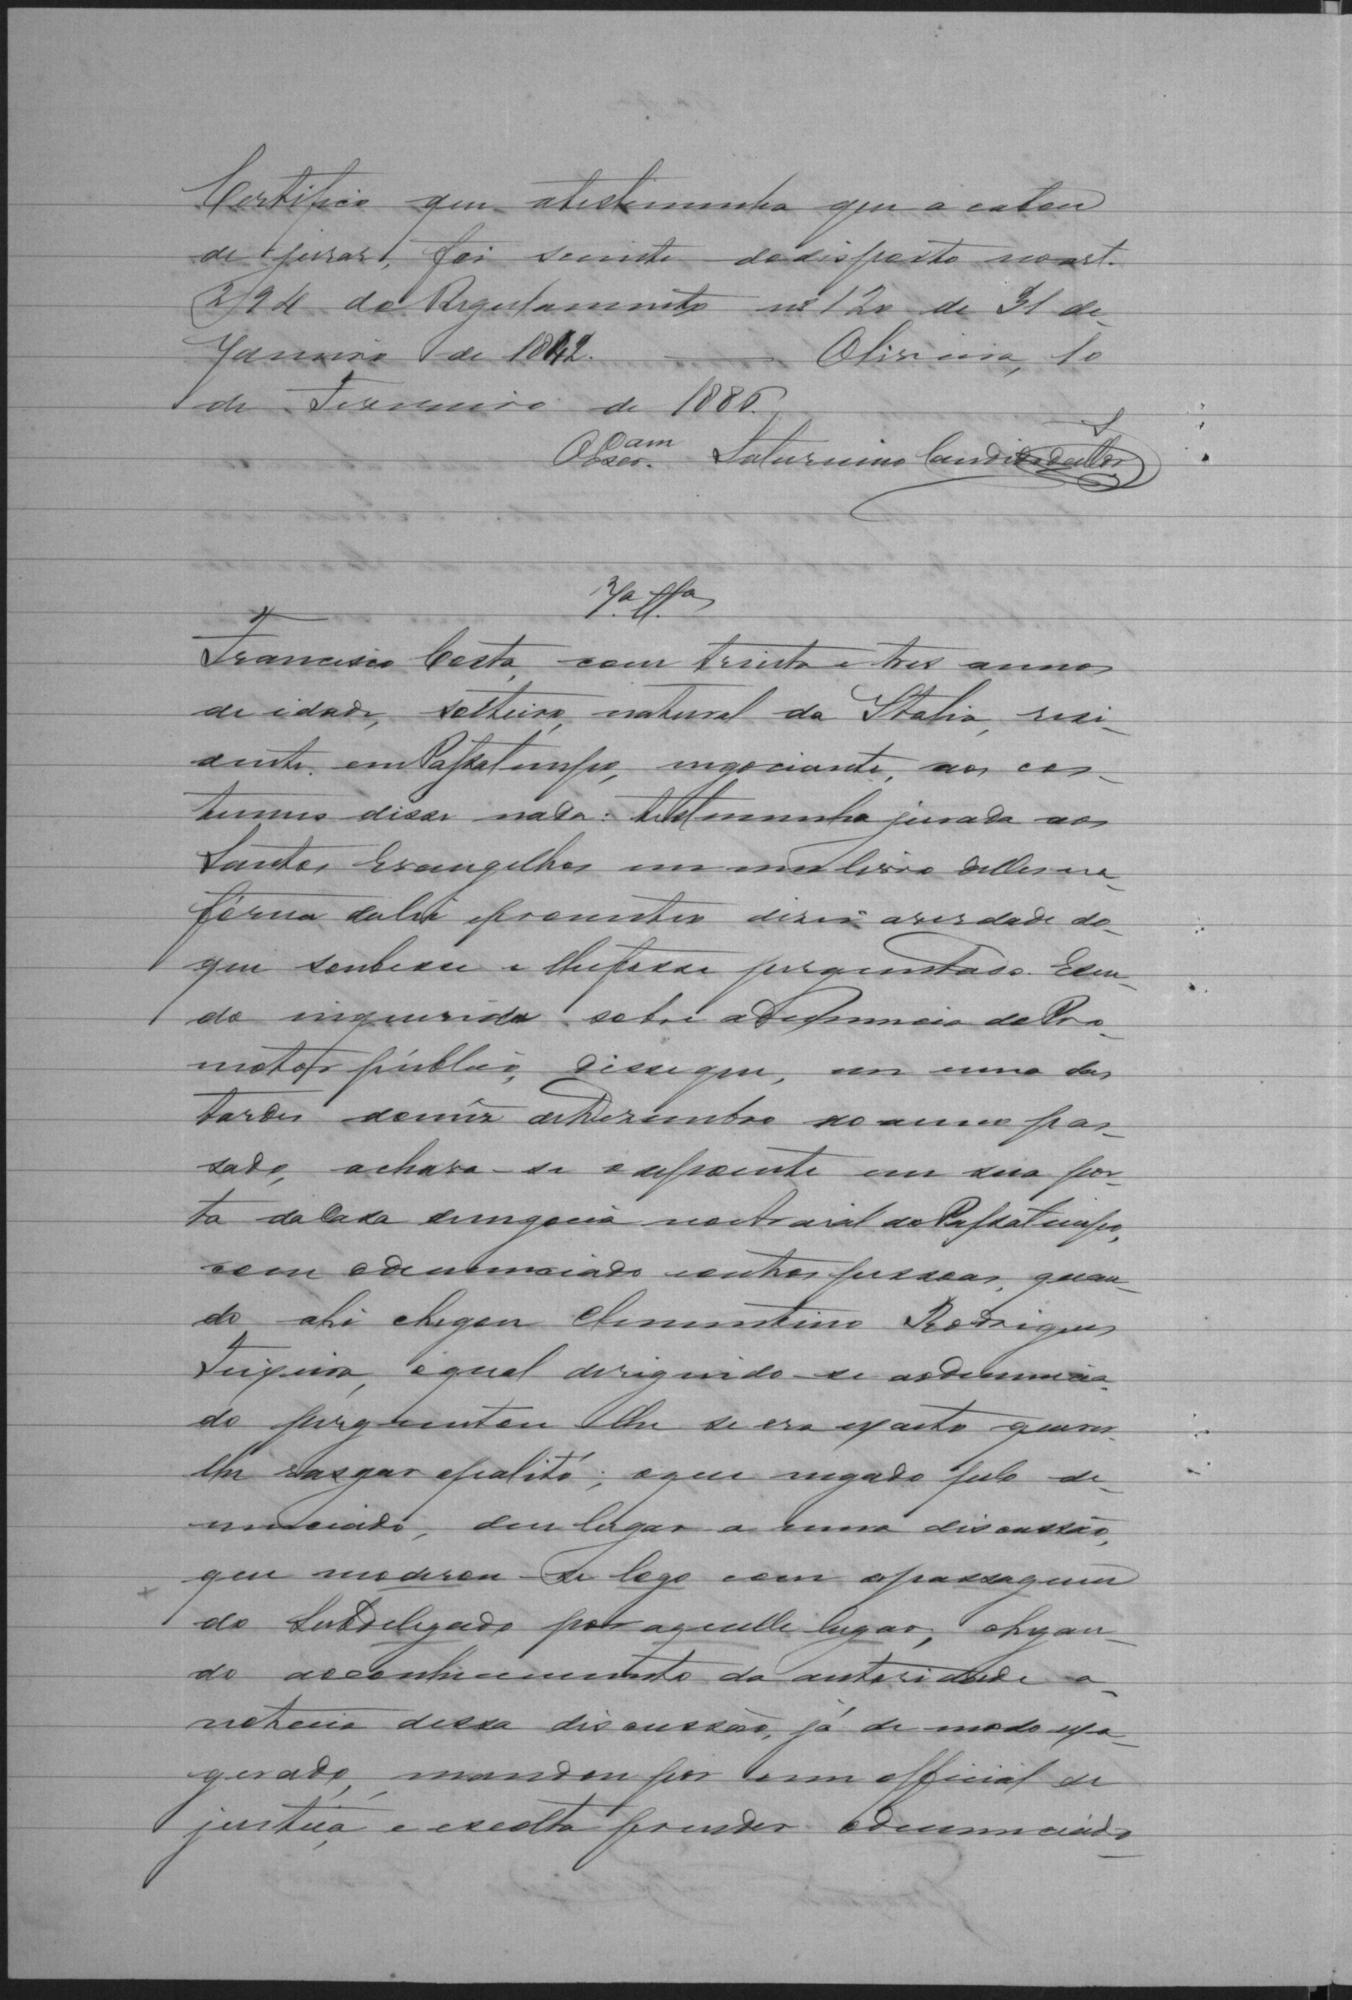 Certifico que atestimunha que acabou
de jurar, foi sciente dodisposto noart.
294 do Regulamento nº 120 de 31 de
Janeiro de 1842. Oliveira, 10
de Fevereiro de 1886.
Saturnino Candido
3ª Tª
Francisco Costa, com trinta e tres annos
de idade, solteiro, natural da Italia, resi-
dente em Passatempo, negociante, aos cos-
tumes disse nada: testemunha jurada aos
Santos Evangelhos em um livro delles na
fórma da lei prometteu dizer averdade do
que soubesse e lhefosse perguntado. Esen-
do inquerida sobre adenuncia do Pro-
motor publico, disseque, em uma das
tardes domêz deDezembro do anno pas-
sado, achava-se o depoente em sua por-
ta da Casa denegocio noArraial do Passatempo,
com odenunciado eoutras pessoas, quan-
do ahi chegou Clementino Rodrigues
Teixeira, oqual deriguindo-se aodenuncia-
do perguntou lhe se era exacto querer
lhe rasgar opalitó; oque negado pelo de-
nunciado, deu lugar a uma discussão,
que moderou-se logo com apassagem
do Subdelegado por aquelle lugar, chegan-
do aoconhecimento da autoridade a
noticia dessa discussão, já de modo exa-
gerado, mandou por um official de
justiça e escolta prender odenunciado